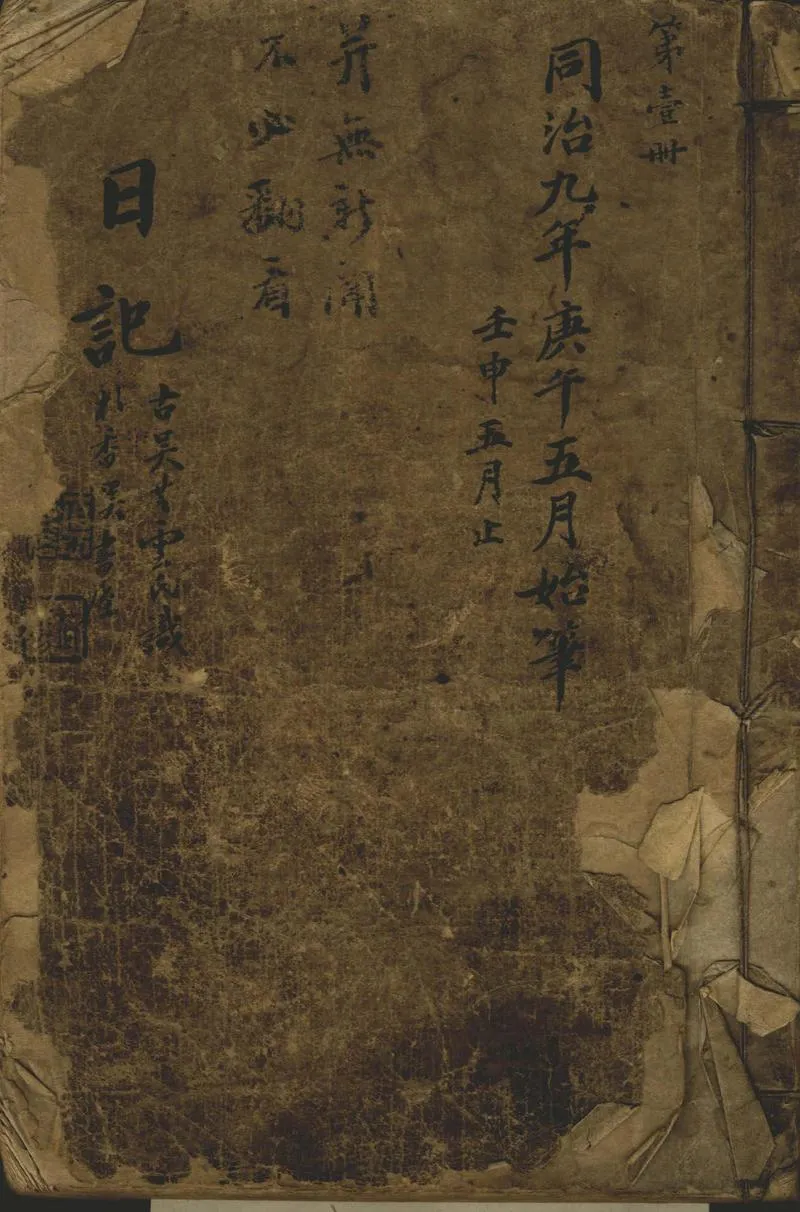 第壹冊
同治九年庚午五月始筆
壬申五月止
並無新聞
不必翻看
日記
古吳 雲氏識
杏吳書